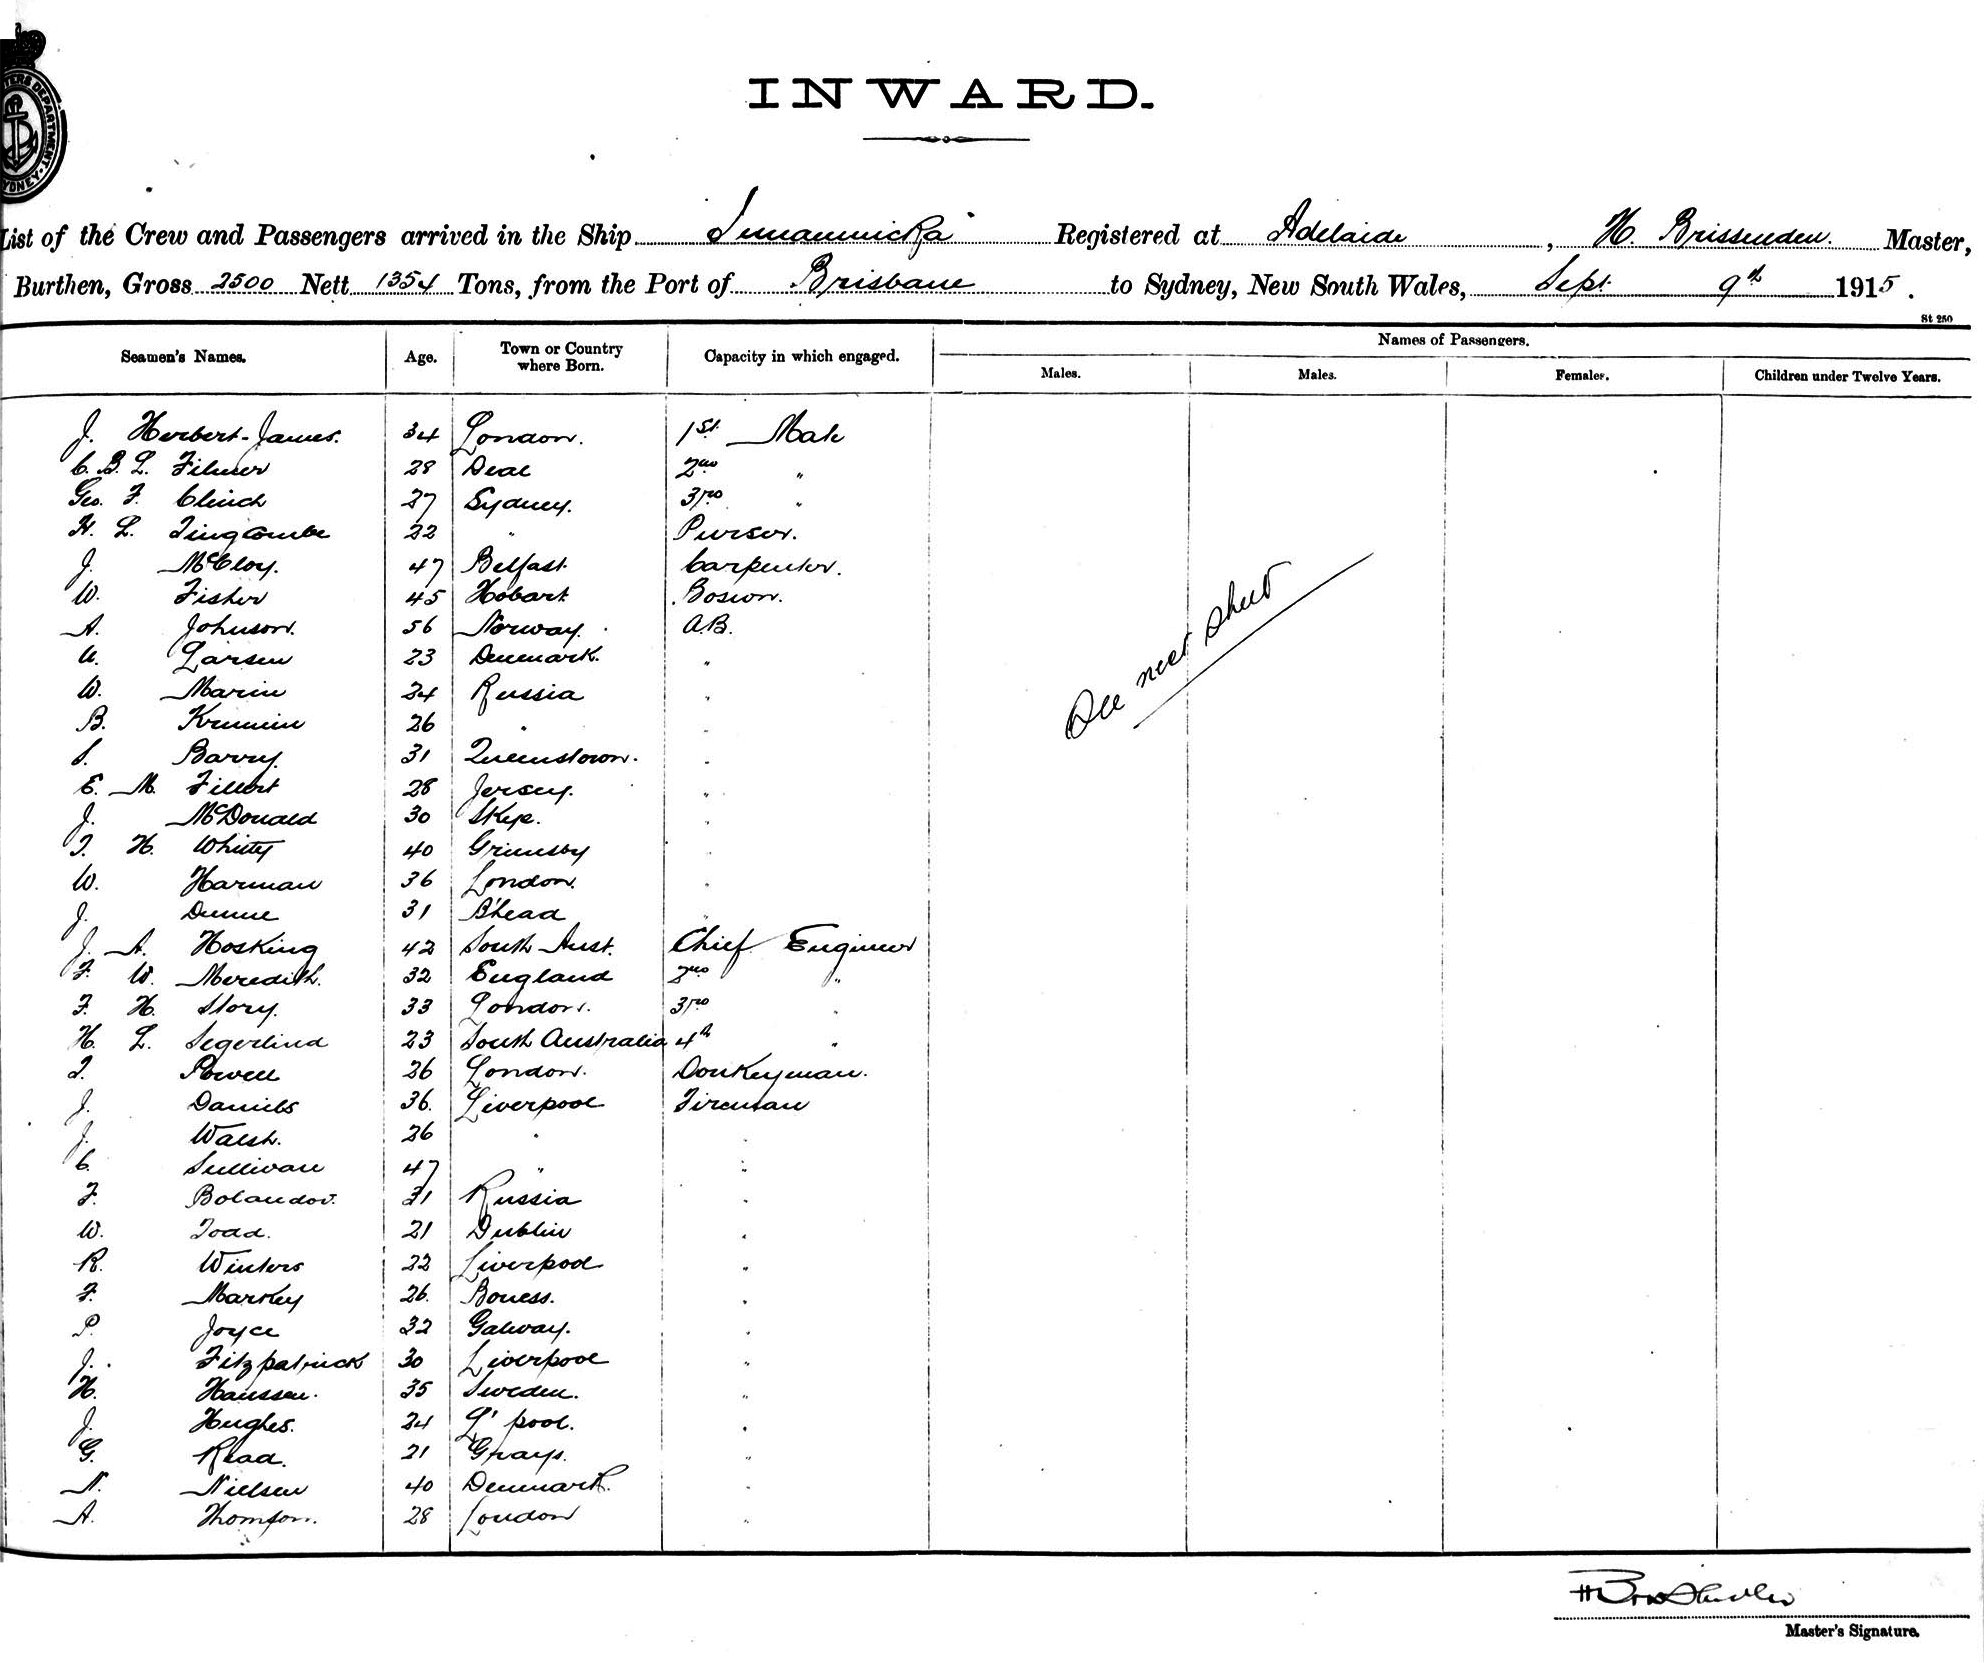 INWARD.
TERS DEPARTMENT. SYDNEY.
List of the Crew and Passengers arrived in the Ship Registered at Adelaide, H. Brissenden. Master,
Burthen, Gross 2500 Nett 1354 Tons, from the Port of Brisbane to Sydney, New South Wales, Sept 9th 1915.
St 250
Names of Passengers.
Seamen's Names. Age. Town or Country where Born. Capacity in which engaged. Males. Males. Females. Children under Twelve Years.
J. Herbert-James. 34 London. 1st Mate
C. B. L. Filmer 28 Deal 2nd "
Geo. F. Clinch 27 Sydney. 3rd "
H. L. Tingcombe 22 " Purser.
J. McCloy. 47 Belfast Carpenter.
W. Fisher 45 Hobart Bosun.
A. Johnson. 56 Norway. A.B.
Larsen 23 Denmark. "
W. Marin 24 Russia "
B. Krumin 26 " "
S. Barry. 31 Queenstown. "
E. M. 28 Jersey. "
J. McDonald 30 Skye. "
T. H. Whitty 40 Grimsby "
W. Harman 36 London. "
J. Dunne 31 B'head "
J. A. Hosking 42 South Aust. Chief Engineer
F. W. Meredith. 32 England 2nd "
F. H. Story. 33 London. 3rd "
H. L. Segerlind 23 South Australia 4th "
T. Powell 26 London. Donkeyman.
J. Daniels 36. Liverpool Fireman
J. Walsh. 26 " "
C. Sullivan 47 " "
F. Bolandov. 31 Russia "
W. Todd. 21 Dublin "
R. Winters 22 Liverpool "
F. Markey 26. Boness. "
P. Joyce 32 Galway. "
J. Fitzpatrick 30 Liverpool "
H. Hanssen. 35 Sweden. "
J. Hughes. 24 L'pool. "
G. Read. 21 Grays. "
N. Nielsen 40 Denmark. "
A. Thomson. 28 London "
See next sheet
Master's Signature.